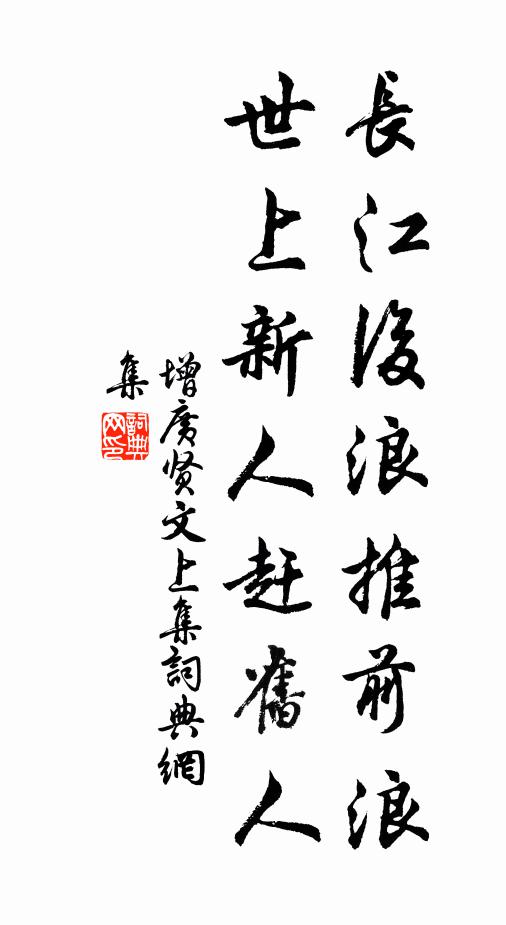 長江後浪推前浪
世上新人赶舊人
增廣贤文上集詞典網
集
詞典网印